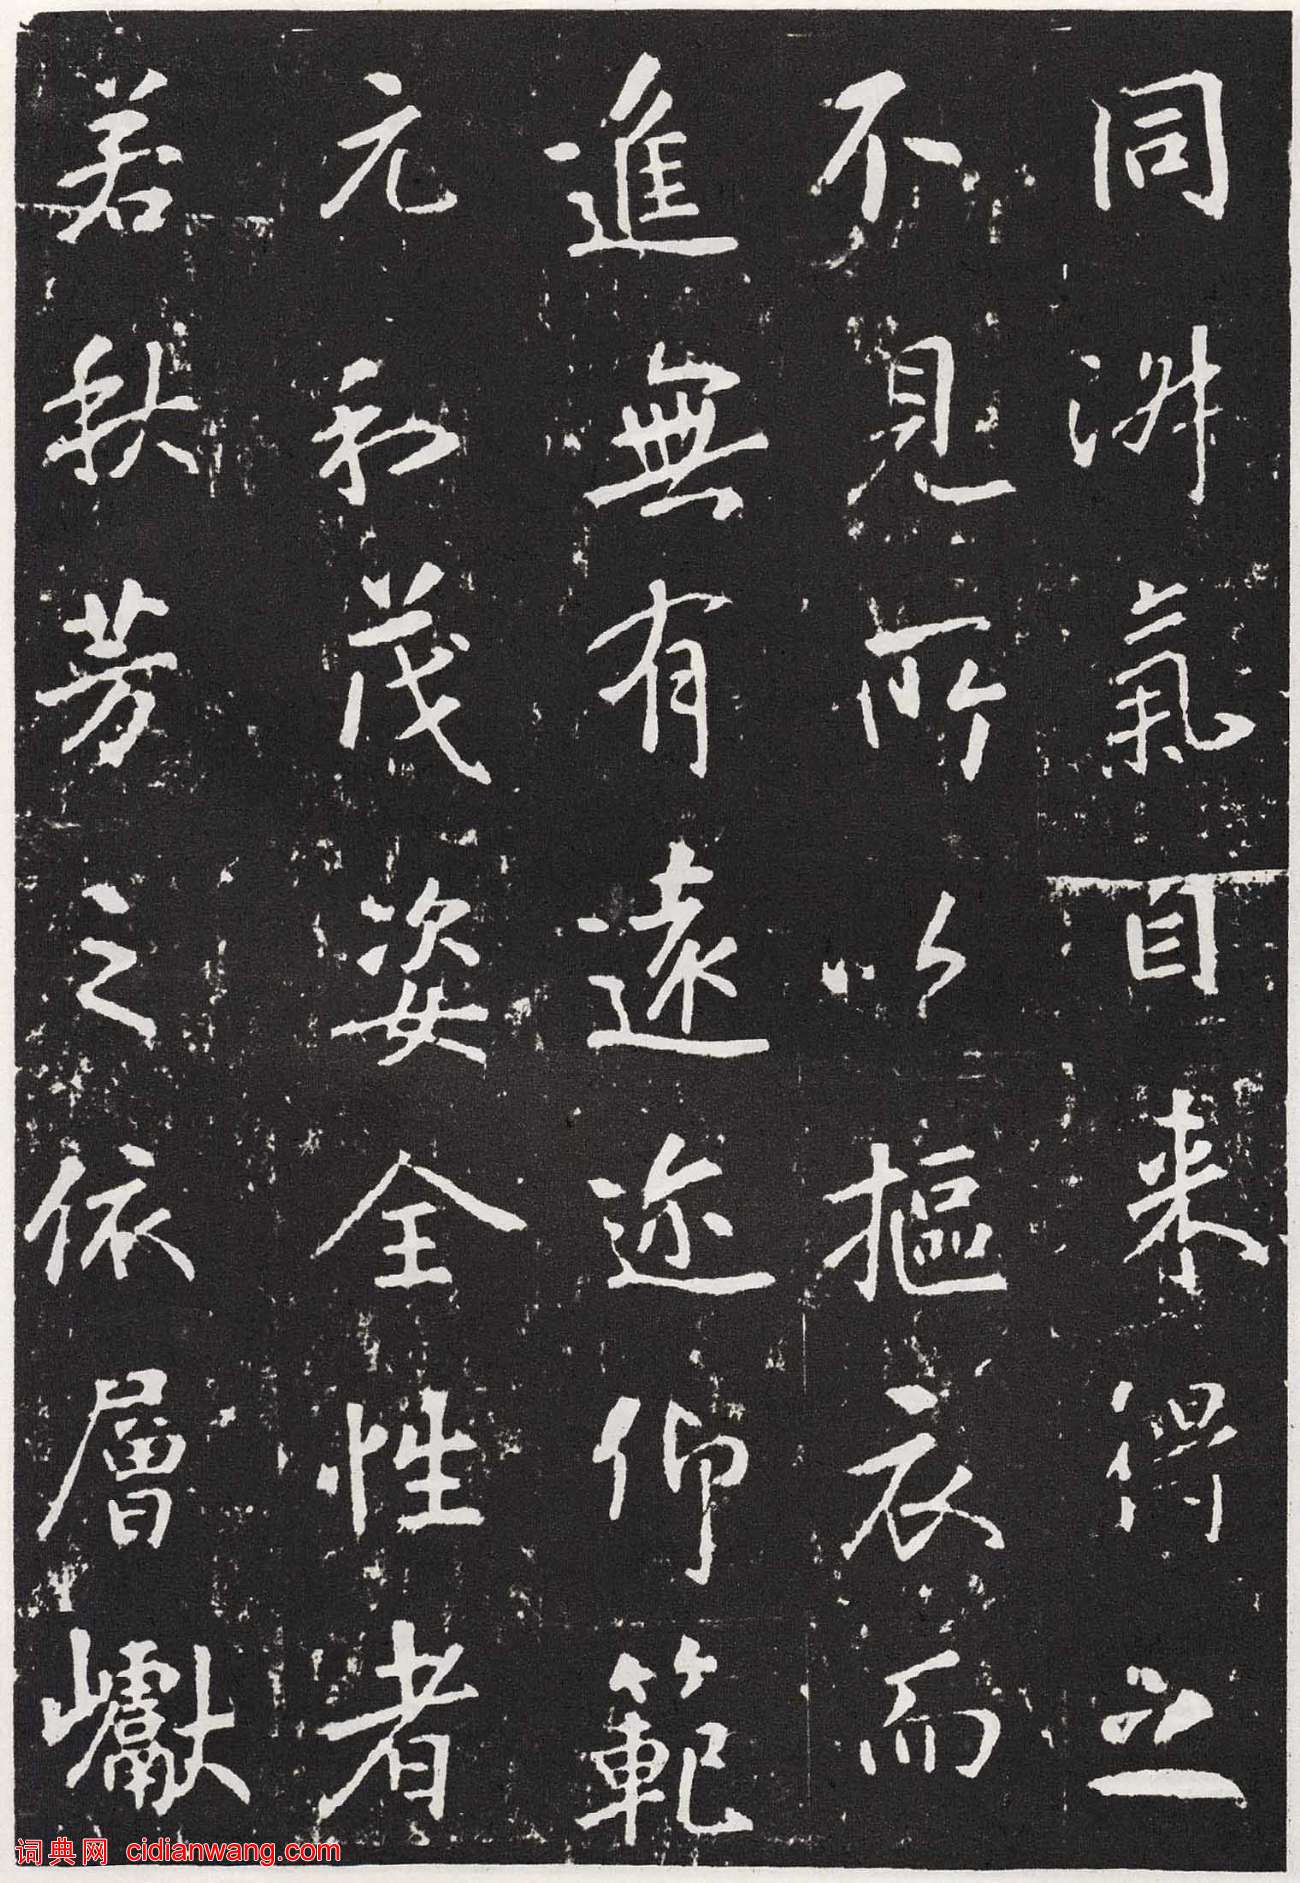 同氣自来得
不見所以摳衣而
進無有遠迩仰範
元和茂姿全性者
若秋芳之依層巘
词典网 cidianwang.com